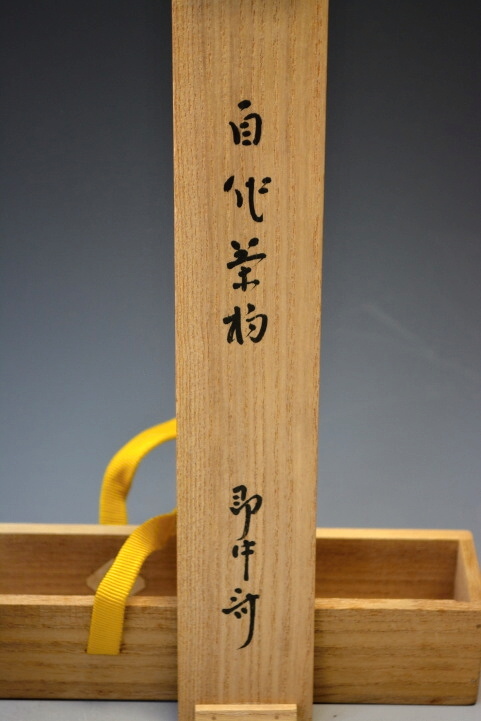 自作茶杓
即中斎